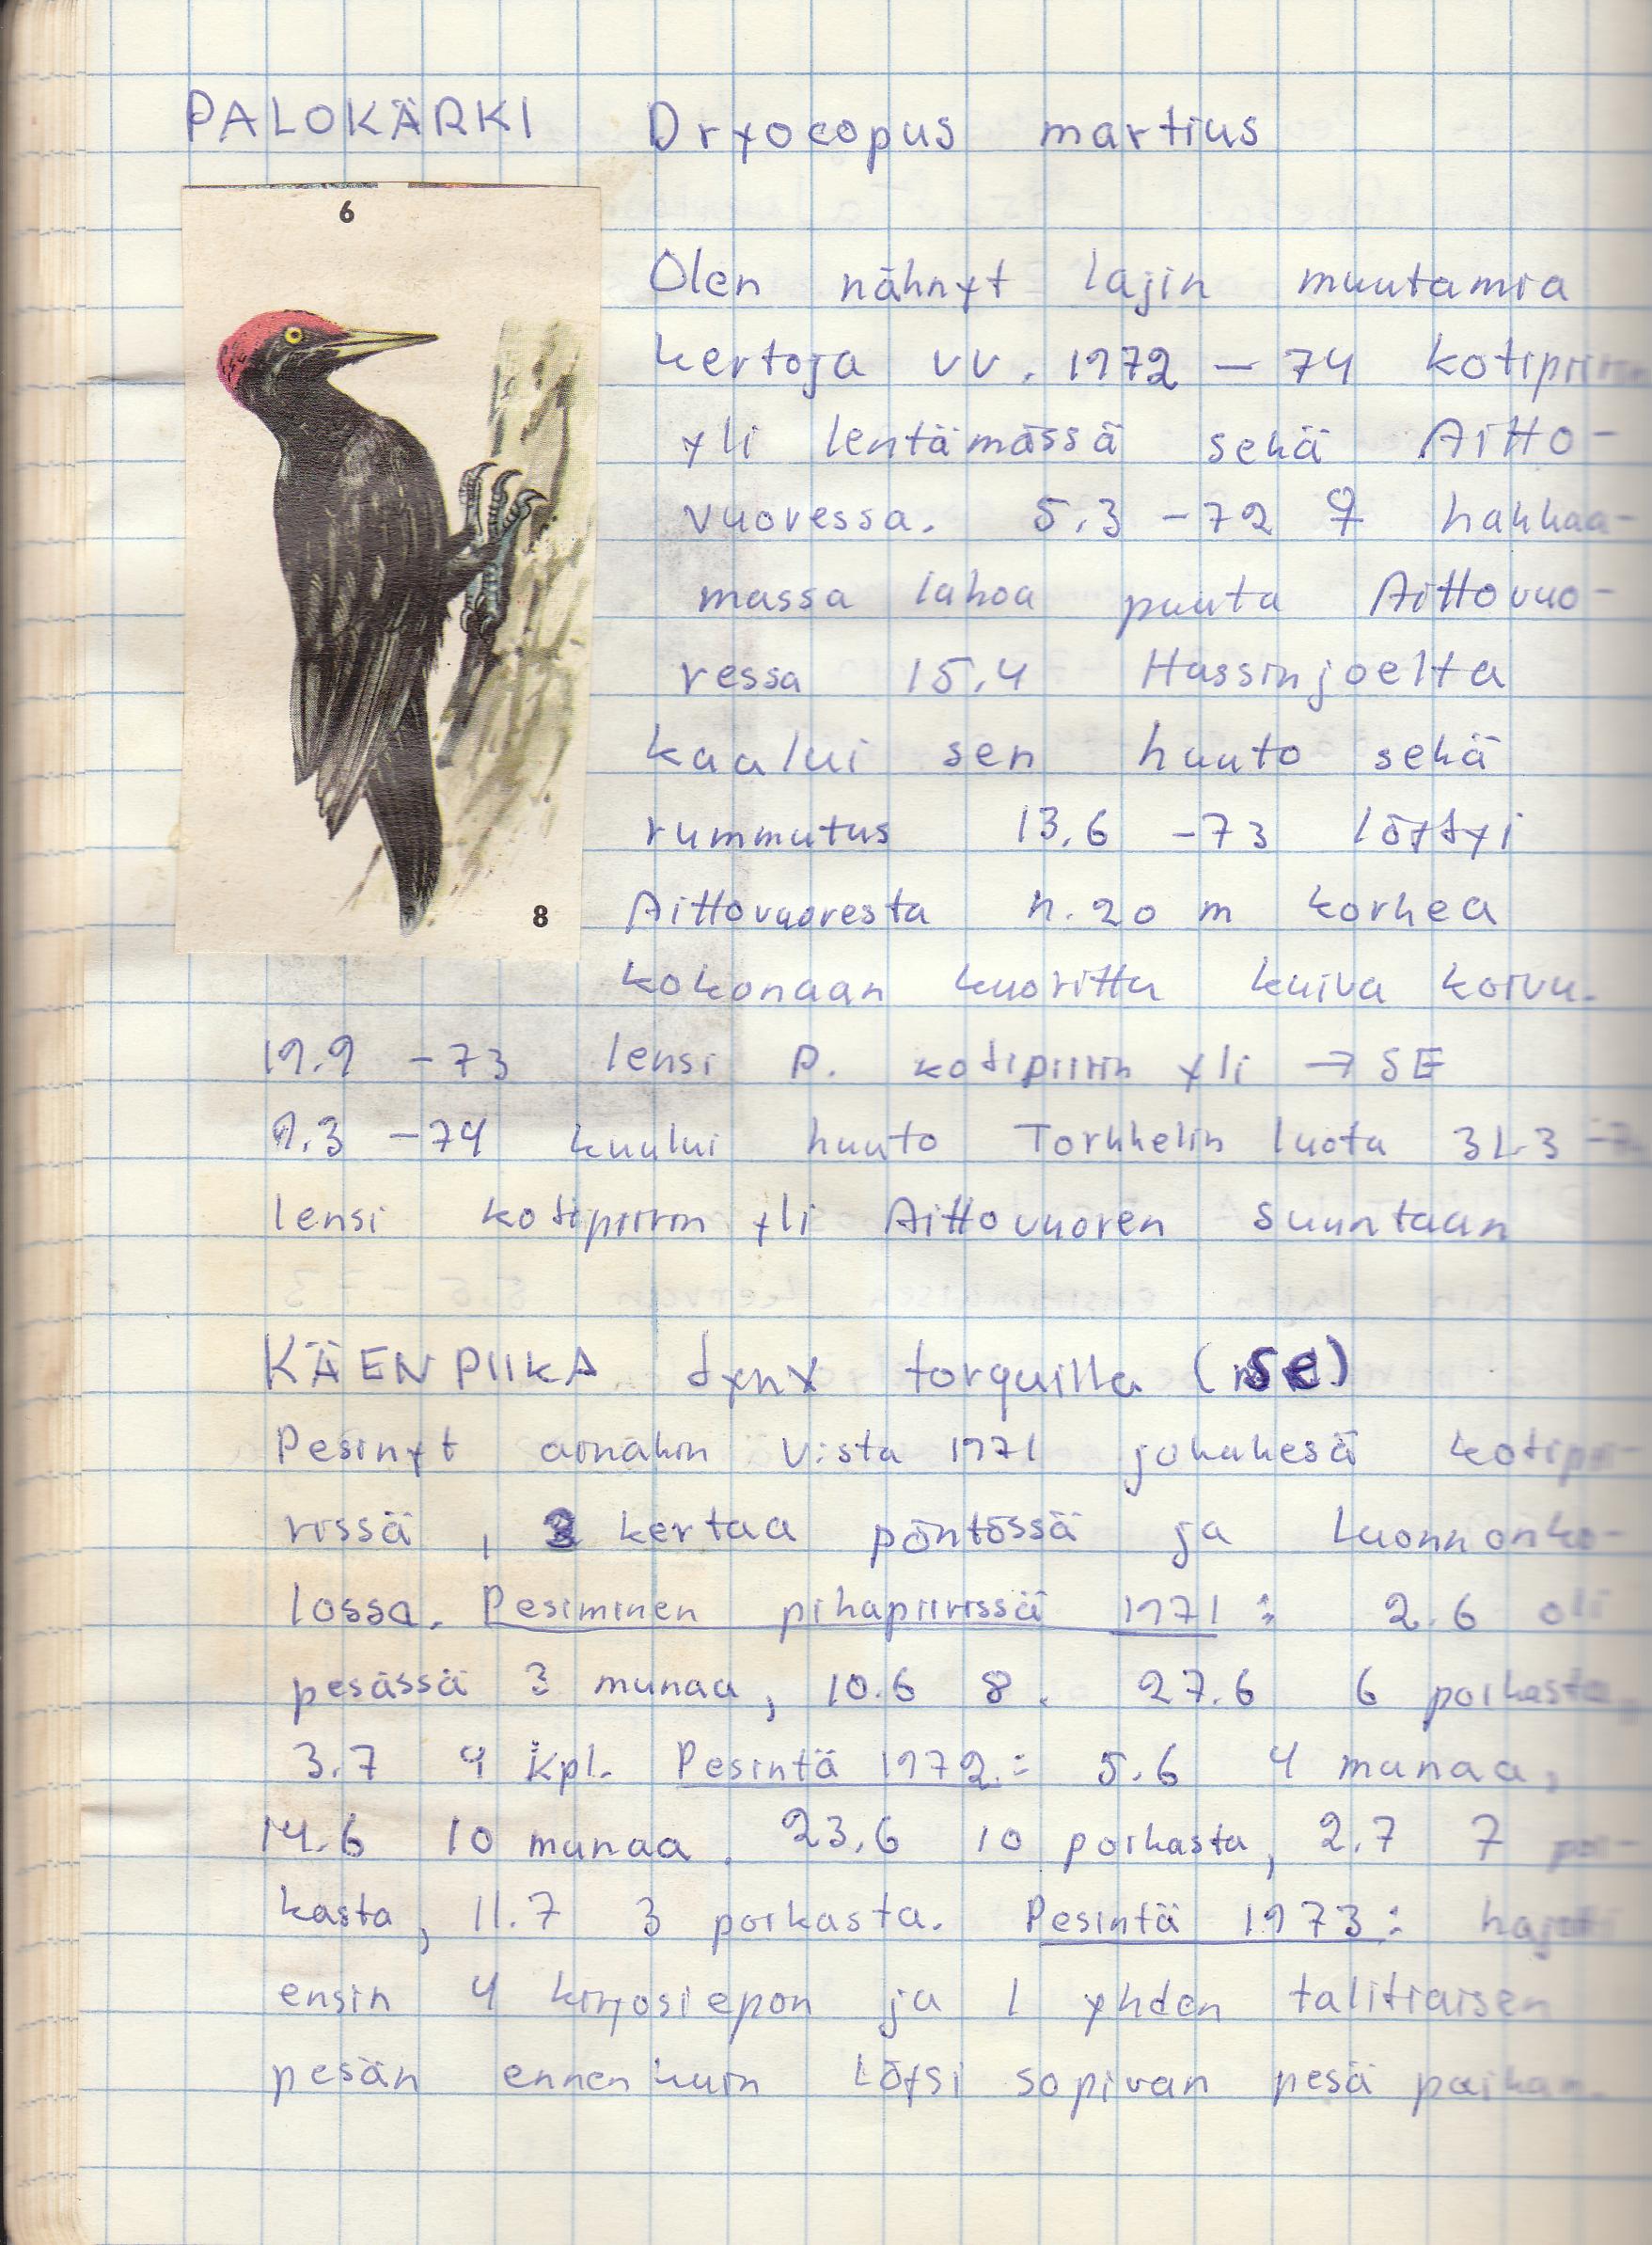 PALOKÄRKI Dryocopus martius
6
Olen nähnyt lajin muutamia
kertoja vv. 1972 – 74 kotipiirin
yli lentämässä sekä Aitto-
vuoressa. 5.3 -72 ♀ hakkaa-
massa lahoa puuta Aittovuo-
ressa 15.4 Hassinjoelta
kaalui sen huuto sekä
rummutus 13.6 -73 löytyi
Aittovuoresta n. 20 m korkea
8
kokonaan kuorittu kuiva koivu.
19.9 -73 lensi P. kotipiirin yli → SE
9.3 -74 kuului huuto Torkkelin luota 31.3
lensi kotipiirin yli Aittovuoren suuntaan
KÄENPIIKA Jynx torquilla (se)
Pesinyt ainakin v:sta 1971 jokakesä kotipii-
rissä, kertaa pöntössä ja luonnonko-
lossa. Pesiminen pihapiirissä 1971: 2.6 oli
pesässä 3 munaa, 10.6 8. 27.6 6 poikasta,
3.7 4 kpl. Pesintä 1972.: 5.6 4 munaa,
14.6 10 munaa. 23.6 10 poikasta, 2.7 7 poi-
kasta, 11.7 3 poikasta. Pesintä 1973: hajotti
ensin 4 kirjosiepon ja 1 yhden talitiaisen
pesän ennenkuin löysi sopivan pesä paikan.